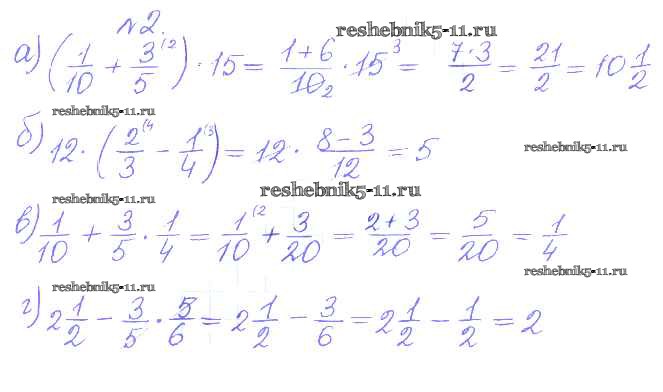 №2.
reshebnik5-11.ru
а) (1/10 + 3/5 (2) · 15 = 1+6/10 2 · 15 3 = 7·3/2 = 21/2 = 10 1/2
reshebnik5-11.ru
б) 12 · (2/3 (4 - 1/4 (3) = 12 · 8-3/12 = 5
reshebnik5-11.ru
reshebnik5-11.ru
reshebnik5-11.ru
в) 1/10 + 3/5 · 1/4 = 1/10 (2 + 3/20 = 2+3/20 = 5/20 = 1/4
reshebnik5-11.ru
reshebnik5-11.ru
г) 2 1/2 - 3/5 · 5/6 = 2 1/2 - 3/6 = 2 1/2 - 1/2 = 2